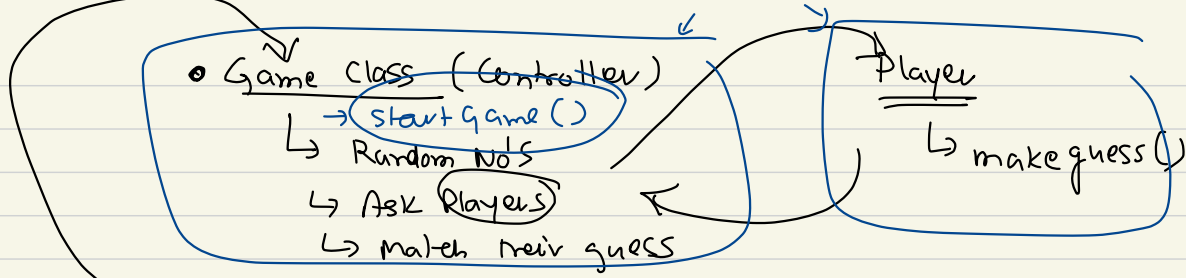 • Game Class (Controller)
→ startGame()
↳ Random No's
↳ Ask Players
↳ Match their guess
Player
↳ makeguess()